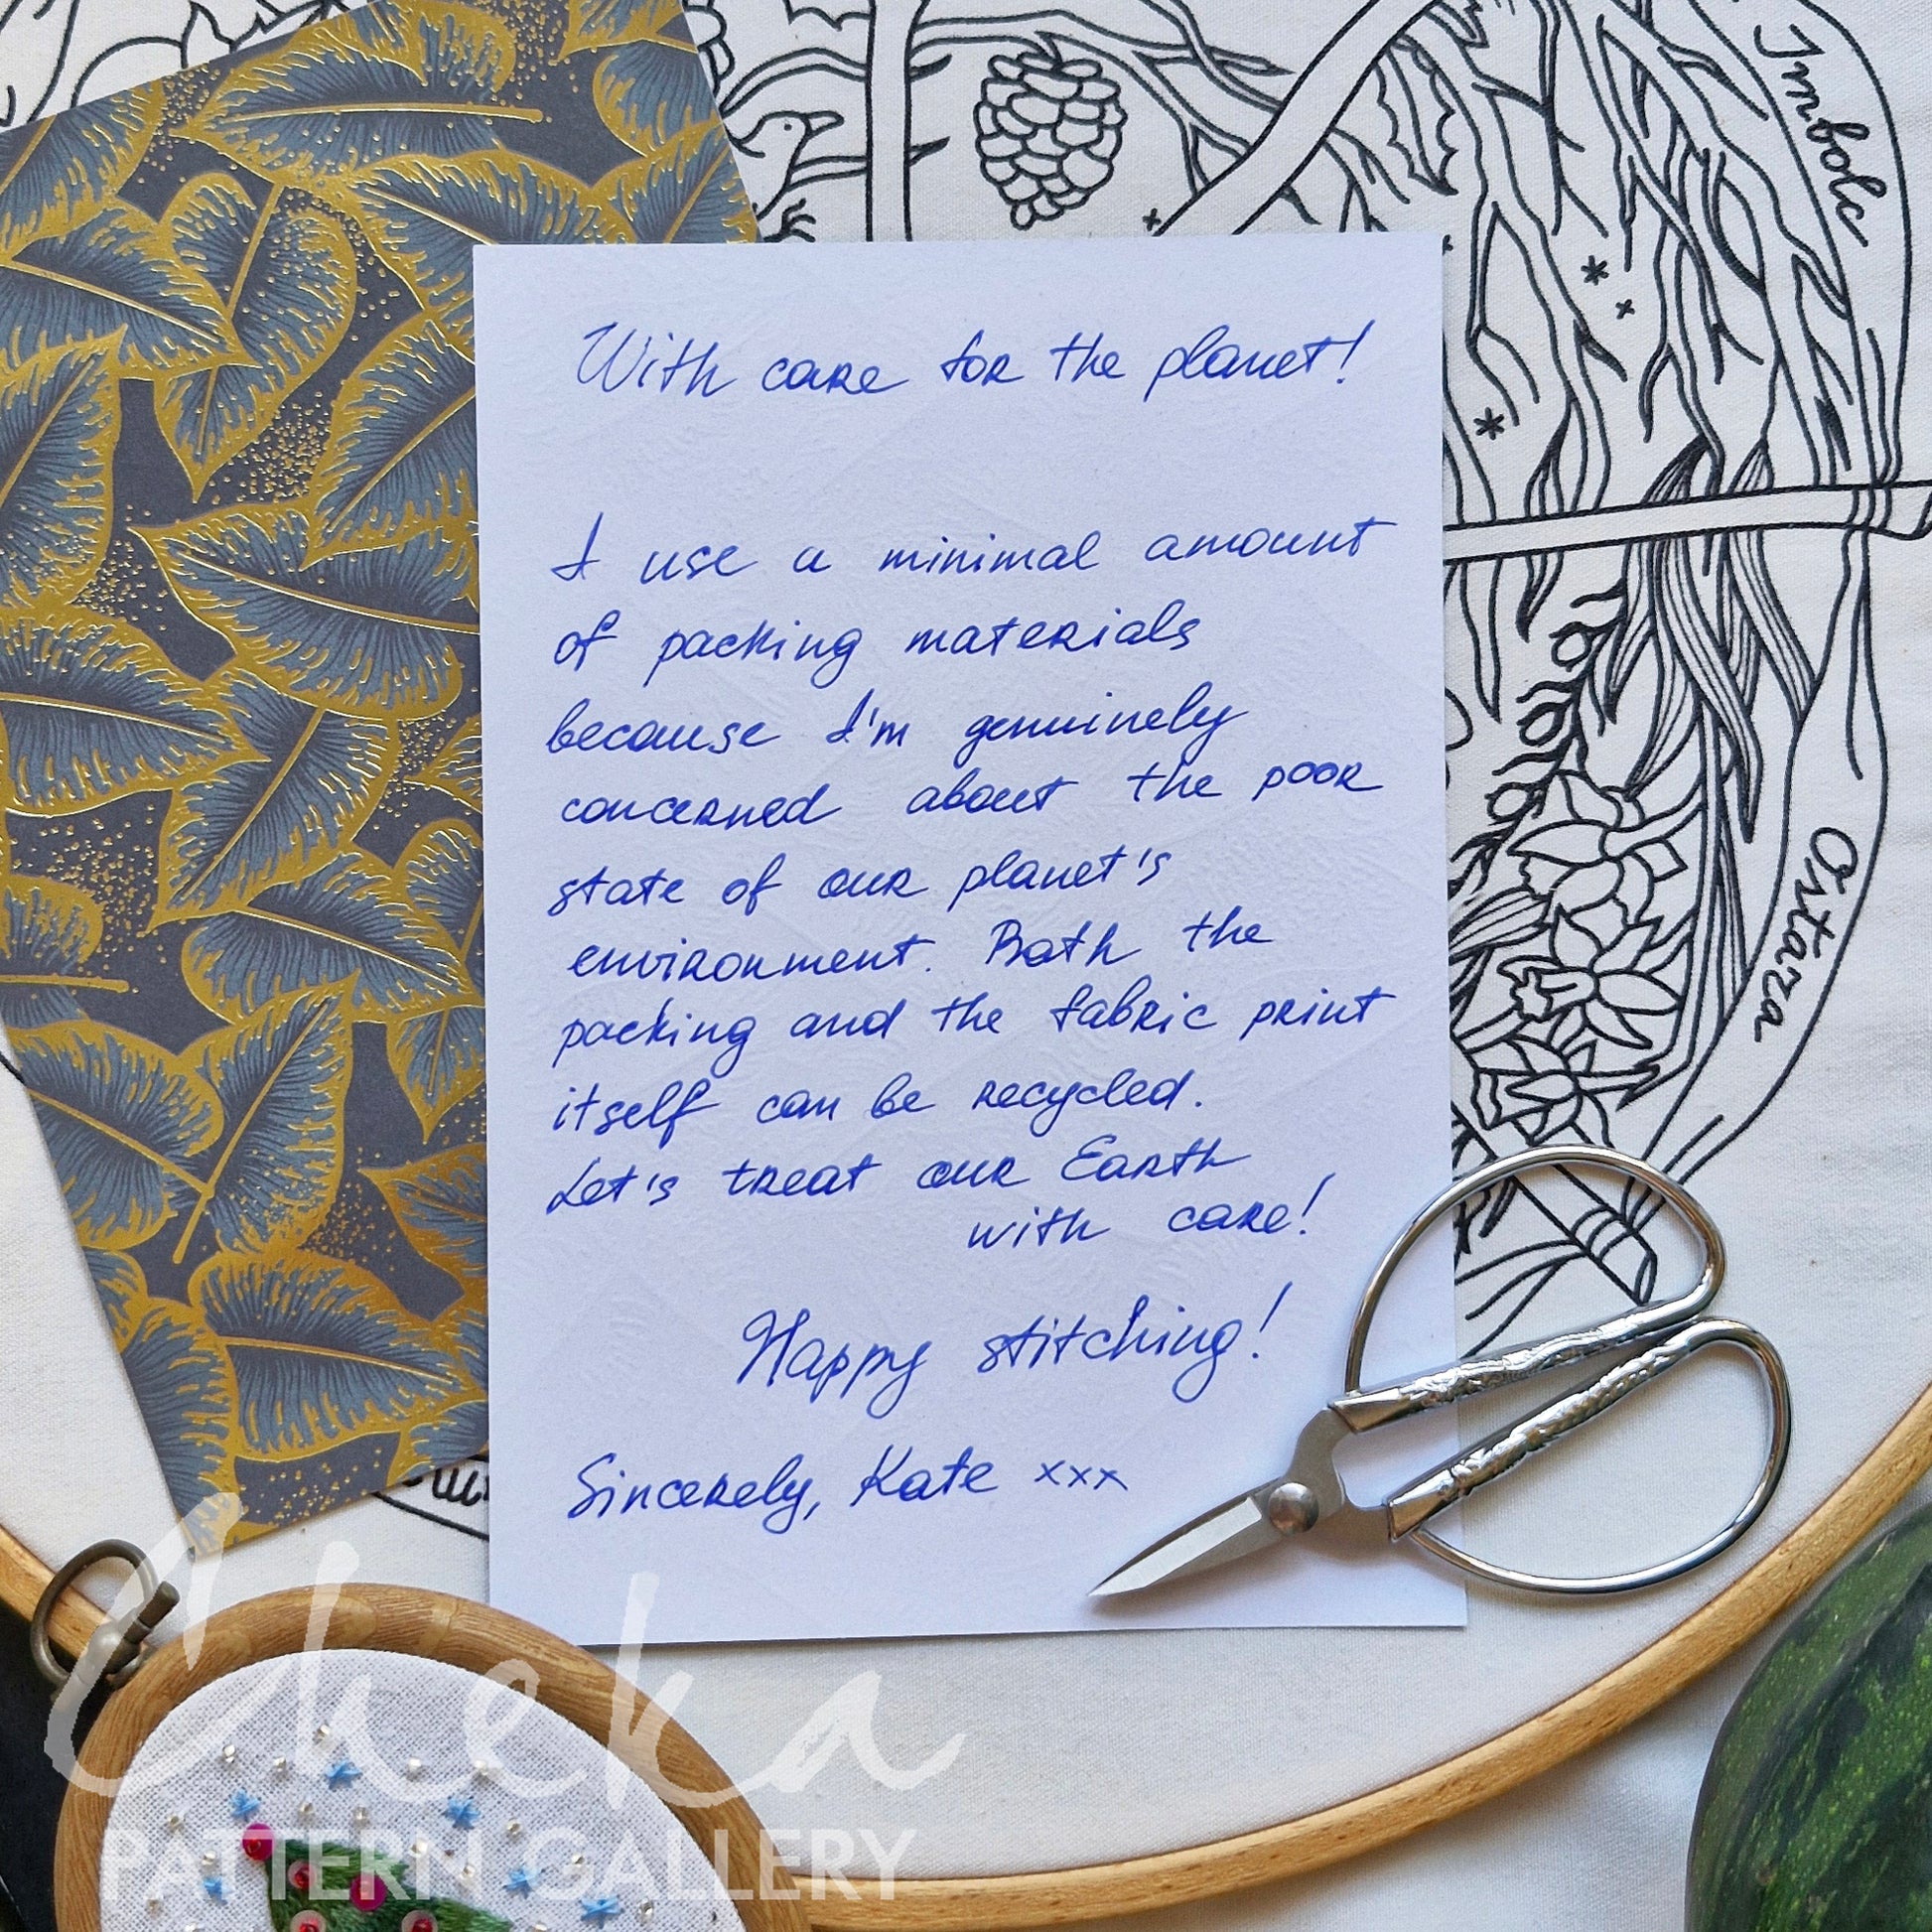 Imbolc
With care for the planet!
I use a minimal amount
of packing materials
because I'm genuinely
concerned about the poor
state of our planet's
environment. Both the
packing and the fabric print
itself can be recycled.
Let's treat our Earth
with care!
Happy stitching!
Sincerely, Kate xxx
Ostara
Cheka
PATTERN GALLERY